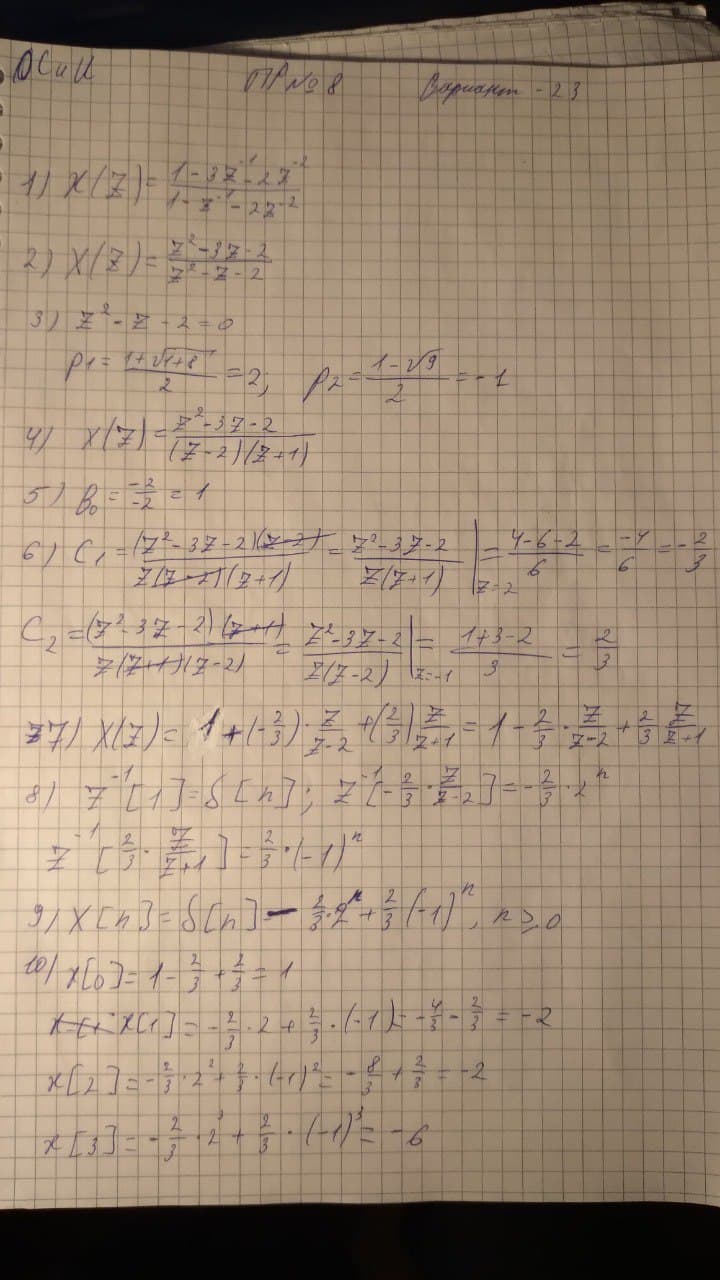 ОСиК ПР№8 Вариант - 23
1) X(Z) = (1 - 3Z⁻¹ - 2Z⁻²)/(1 - Z⁻¹ - 2Z⁻²)
2) X(Z) = (Z² - 3Z - 2)/(Z² - Z - 2)
3) Z² - Z - 2 = 0
P1 = (1 + √(1+8))/2 = 2; P2 = (1 - √9)/2 = -1
4) X(Z) = (Z² - 3Z - 2)/((Z - 2)(Z + 1))
5) B₀ = (-2)/(-2) = 1
6) C₁ = ((Z² - 3Z - 2)(Z - 2))/(Z(Z - 2)(Z + 1)) = (Z² - 3Z - 2)/(Z(Z + 1)) |z=2 = (4 - 6 - 2)/6 = -4/6 = -2/3
C₂ = ((Z² - 3Z - 2)(Z + 1))/(Z(Z + 1)(Z - 2)) = (Z² - 3Z - 2)/(Z(Z - 2)) |z=-1 = (1 + 3 - 2)/3 = 2/3
7) X(Z) = 1 + (-2/3) · Z/(Z - 2) + (2/3) Z/(Z + 1) = 1 - 2/3 · Z/(Z - 2) + 2/3 Z/(Z + 1)
8) Z⁻¹[1] = δ[n]; Z⁻¹[-2/3 · Z/(Z - 2)] = -2/3 · 2ⁿ
Z⁻¹[2/3 · Z/(Z + 1)] = 2/3 · (-1)ⁿ
9) X[n] = δ[n] - 2/3 · 2ⁿ + 2/3 (-1)ⁿ, n ≥ 0
10) x[0] = 1 - 2/3 + 2/3 = 1
x[1] = -2/3 · 2 + 2/3 · (-1) = -4/3 - 2/3 = -2
x[2] = -2/3 · 2² + 2/3 · (-1)² = -8/3 + 2/3 = -2
x[3] = -2/3 · 2³ + 2/3 · (-1)³ = -6